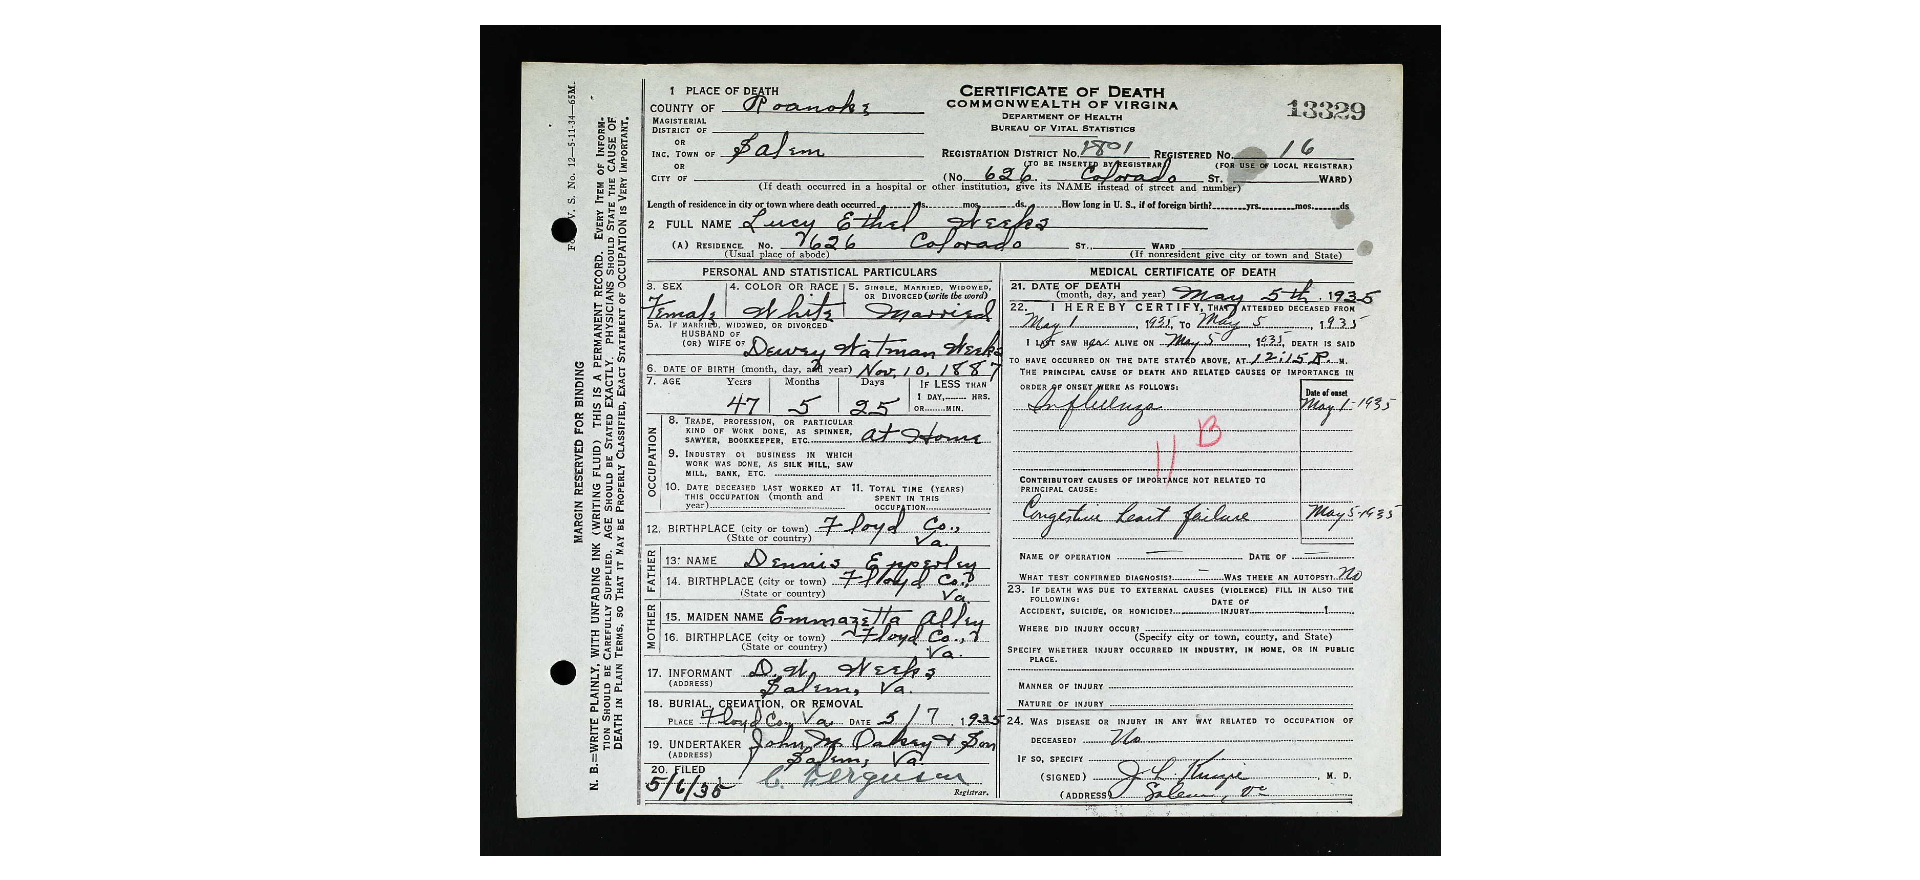 For V. S. No. 12—5-11-34—65M.
MARGIN RESERVED FOR BINDING
N. B.—WRITE PLAINLY, WITH UNFADING INK (WRITING FLUID) THIS IS A PERMANENT RECORD. EVERY ITEM OF INFORM-
TION SHOULD BE CAREFULLY SUPPLIED. AGE SHOULD BE STATED EXACTLY. PHYSICIANS SHOULD STATE THE CAUSE OF
DEATH IN PLAIN TERMS, SO THAT IT MAY BE PROPERLY CLASSIFIED, EXACT STATEMENT OF OCCUPATION IS VERY IMPORTANT.
CERTIFICATE OF DEATH
COMMONWEALTH OF VIRGINA
DEPARTMENT OF HEALTH
BUREAU OF VITAL STATISTICS
13329
1 PLACE OF DEATH
COUNTY OF Roanoke
MAGISTERIAL
DISTRICT OF
OR
INC. TOWN OF Salem
OR
CITY OF
REGISTRATION DISTRICT No. 1801 REGISTERED No. 16
(TO BE INSERTED BY REGISTRAR) (FOR USE OF LOCAL REGISTRAR)
(No. 626. Colorado ST. WARD)
(If death occurred in a hospital or other institution, give its NAME instead of street and number)
Length of residence in city or town where death occurred yrs. mos. ds. How long in U. S., if of foreign birth? yrs. mos. ds
2 FULL NAME Lucy Ethel Weeks
(A) RESIDENCE. No. 626 Colorado ST., WARD
(Usual place of abode) (If nonresident give city or town and State)
PERSONAL AND STATISTICAL PARTICULARS
3. SEX 4. COLOR OR RACE 5. SINGLE, MARRIED, WIDOWED,
OR DIVORCED (write the word)
Female White Married
5A. IF MARRIED, WIDOWED, OR DIVORCED
HUSBAND OF
(OR) WIFE OF Dewey Watman Weeks
6. DATE OF BIRTH (month, day, and year) Nov. 10, 1887
7. AGE Years Months Days IF LESS THAN
1 DAY, HRS.
47 5 25 OR MIN.
OCCUPATION
8. TRADE, PROFESSION, OR PARTICULAR
KIND OF WORK DONE, AS SPINNER,
SAWYER, BOOKKEEPER, ETC. at Home
9. INDUSTRY OR BUSINESS IN WHICH
WORK WAS DONE, AS SILK MILL, SAW
MILL, BANK, ETC.
10. DATE DECEASED LAST WORKED AT
THIS OCCUPATION (month and
year)
11. TOTAL TIME (YEARS)
SPENT IN THIS
OCCUPATION
12. BIRTHPLACE (city or town) Floyd Co.,
(State or country) Va.
FATHER
13. NAME Dennis Epperley
14. BIRTHPLACE (city or town) Floyd Co.,
(State or country) Va.
MOTHER
15. MAIDEN NAME Emmazetta Alley
16. BIRTHPLACE (city or town) Floyd Co.,
(State or country) Va.
17. INFORMANT D. W. Weeks
(ADDRESS) Salem, Va.
18. BURIAL, CREMATION, OR REMOVAL
PLACE Floyd Co., Va DATE 5/7, 1935
19. UNDERTAKER John M. Oakey & Son
(ADDRESS) Salem, Va
20. FILED
5/6/35 C. Ferguson
Registrar.
MEDICAL CERTIFICATE OF DEATH
21. DATE OF DEATH
(month, day, and year) May 5th, 1935
22. I HEREBY CERTIFY, THAT I ATTENDED DECEASED FROM
May 1, 1935, TO May 5, 1935
I LAST SAW Her ALIVE ON May 5, 1935, DEATH IS SAID
TO HAVE OCCURRED ON THE DATE STATED ABOVE, AT 12:15 P. M.
THE PRINCIPAL CAUSE OF DEATH AND RELATED CAUSES OF IMPORTANCE IN
ORDER OF ONSET WERE AS FOLLOWS:
Date of onset
Influenza May 1-1935
11 B
CONTRIBUTORY CAUSES OF IMPORTANCE NOT RELATED TO
PRINCIPAL CAUSE:
Congestive heart failure May 5-1935
NAME OF OPERATION — DATE OF —
WHAT TEST CONFIRMED DIAGNOSIS? — WAS THERE AN AUTOPSY? No
23. IF DEATH WAS DUE TO EXTERNAL CAUSES (VIOLENCE) FILL IN ALSO THE
FOLLOWING:
DATE OF
ACCIDENT, SUICIDE, OR HOMICIDE? INJURY 1
WHERE DID INJURY OCCUR?
(Specify city or town, county, and State)
SPECIFY WHETHER INJURY OCCURRED IN INDUSTRY, IN HOME, OR IN PUBLIC
PLACE.
MANNER OF INJURY
NATURE OF INJURY
24. WAS DISEASE OR INJURY IN ANY WAY RELATED TO OCCUPATION OF
DECEASED? No
IF SO, SPECIFY
(SIGNED) J L Kinzie, M. D.
(ADDRESS) Salem, Va